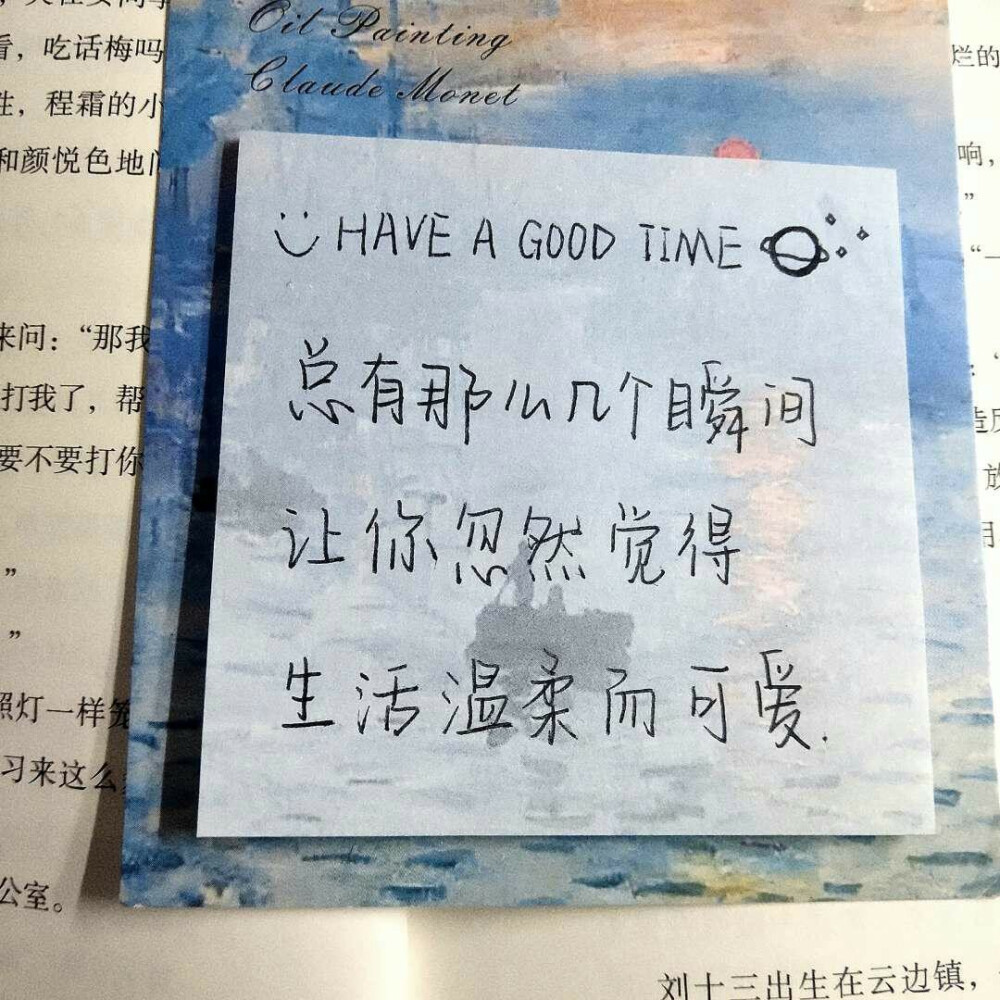 Oil Painting
Claude Monet
HAVE A GOOD TIME
总有那么几个瞬间
让你忽然觉得
生活温柔而可爱.
看，吃话梅吗
程霜的小
和颜悦色地
来问：“那我
打我了，帮
要不要打你
”
”
照灯一样笼
习来这么
公室。
烂的
响，
”
“一
：“
放
刘十三出生在云边镇，